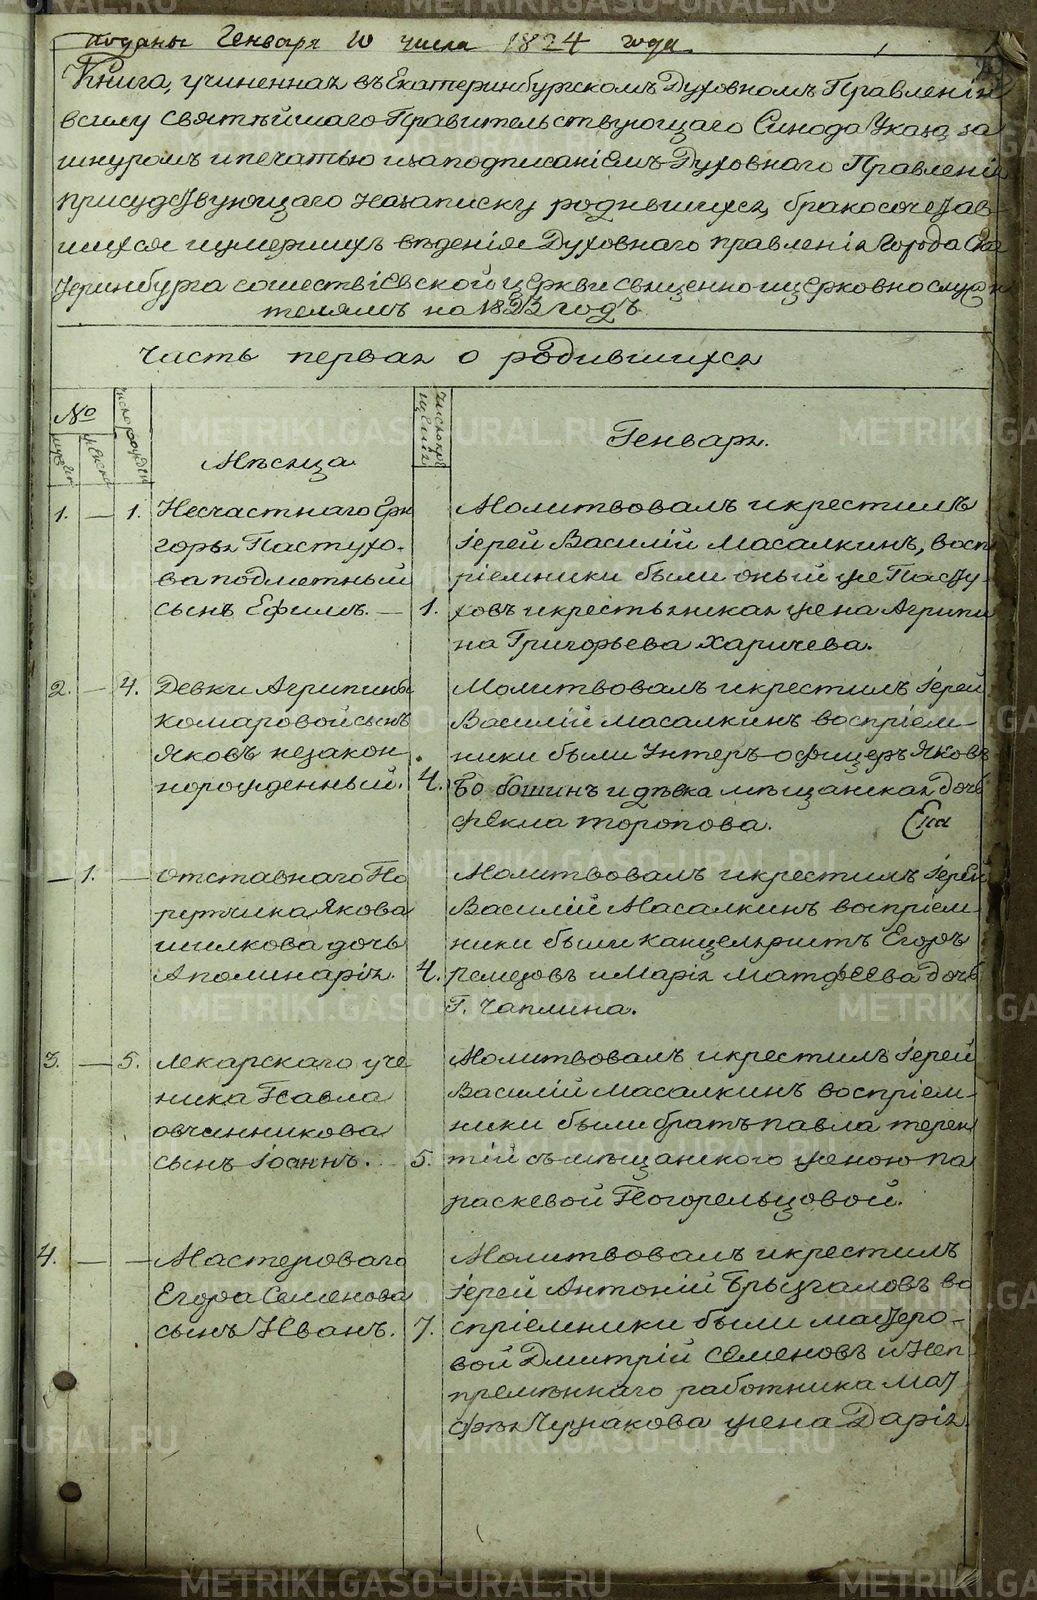 поданы Генваря 10 числа 1824 года
Книга, учиненная въ Екатеринбургскомъ Духовномъ Правленіи
всилу Святѣйшаго Правительствующаго Синода Указа, за
шнуромъ ипечатью изаподписаніемъ Духовнаго Правленія
присудствующаго назаписку родившихся, бракосочетав-
шихся иумершихъ вѣденія Духовнаго правленія Города Ека
теринбурга сошествіевской церкви священноицерковнослужи
телямъ на 1823 годъ
Часть первая о родившихся
№
муж
женска
число рожден
Мѣсяца
число кре
щенія
Генваря.
1. — 1. Несчастнаго Гри
горья Пастухо-
ва подметный
сынъ Ефимъ. — 1.
Молитвовалъ икрестилъ
Іерей Василій Масалкинъ, восп
ріемники были оный же Пасту-
ховъ икрестьянская жена Агрипи
на Григорьева Харичева.
2. — 4. Девки Агрипины
комаровой сынъ
Яковъ незакон
норожденный. 4.
Молитвовалъ икрестилъ Іерей
Василій масалкинъ воспріем-
ники были Унтеръ-офицеръ Яковъ
идѣвка мѣщанская дочь
фекла торопова.
— 1. — отставнаго По
ручика Якова
шилкова дочь
Аполинарія. 4.
Молитвовалъ икрестилъ Іерей
Василій Масалкинъ воспріем-
ники были канцеляристъ Егоръ
ремезовъ иМарія матфеева дочь
Г. Чаплина.
3. — 5. лекарскаго уче
ника Павла
овчинникова
сынъ Іоаннъ. 5.
Молитвовалъ икрестилъ Іерей
Василій масалкинъ воспріем-
ники были братъ павла терен
тій съ мѣщанского женою па
раскевой Погорельцовой.
4. — — Мастероваго
Егора Семенова
сынъ Иванъ. 7.
Молитвовалъ икрестилъ
Іерей Антоній Брызгаловъ во
спріемники были мастеро-
вой Дмитрій Семеновъ иНеп
премѣннаго работника мат
фѣя жена Дарія
METRIKI.GASO-URAL.RU